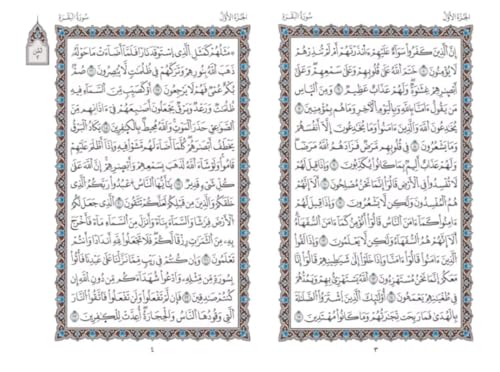 الجزء الأول سورة البقرة
إِنَّ ٱلَّذِينَ كَفَرُوا۟ سَوَآءٌ عَلَيْهِمْ ءَأَنذَرْتَهُمْ أَمْ لَمْ تُنذِرْهُمْ
لَا يُؤْمِنُونَ ٦ خَتَمَ ٱللَّهُ عَلَىٰ قُلُوبِهِمْ وَعَلَىٰ سَمْعِهِمْ وَعَلَىٰٓ
أَبْصَٰرِهِمْ غِشَٰوَةٌ وَلَهُمْ عَذَابٌ عَظِيمٌ ٧ وَمِنَ ٱلنَّاسِ
مَن يَقُولُ ءَامَنَّا بِٱللَّهِ وَبِٱلْيَوْمِ ٱلْءَاخِرِ وَمَا هُم بِمُؤْمِنِينَ ٨
يُخَٰدِعُونَ ٱللَّهَ وَٱلَّذِينَ ءَامَنُوا۟ وَمَا يَخْدَعُونَ إِلَّآ أَنفُسَهُمْ
وَمَا يَشْعُرُونَ ٩ فِى قُلُوبِهِم مَّرَضٌ فَزَادَهُمُ ٱللَّهُ مَرَضًا
وَلَهُمْ عَذَابٌ أَلِيمٌۢ بِمَا كَانُوا۟ يَكْذِبُونَ ١٠ وَإِذَا قِيلَ لَهُمْ
لَا تُفْسِدُوا۟ فِى ٱلْأَرْضِ قَالُوٓا۟ إِنَّمَا نَحْنُ مُصْلِحُونَ ١١ أَلَآ إِنَّهُمْ
هُمُ ٱلْمُفْسِدُونَ وَلَٰكِن لَّا يَشْعُرُونَ ١٢ وَإِذَا قِيلَ لَهُمْ
ءَامِنُوا۟ كَمَآ ءَامَنَ ٱلنَّاسُ قَالُوٓا۟ أَنُؤْمِنُ كَمَآ ءَامَنَ ٱلسُّفَهَآءُ
أَلَآ إِنَّهُمْ هُمُ ٱلسُّفَهَآءُ وَلَٰكِن لَّا يَعْلَمُونَ ١٣ وَإِذَا لَقُوا۟
ٱلَّذِينَ ءَامَنُوا۟ قَالُوٓا۟ ءَامَنَّا وَإِذَا خَلَوْا۟ إِلَىٰ شَيَٰطِينِهِمْ قَالُوٓا۟ إِنَّا
مَعَكُمْ إِنَّمَا نَحْنُ مُسْتَهْزِءُونَ ١٤ ٱللَّهُ يَسْتَهْزِئُ بِهِمْ وَيَمُدُّهُمْ
فِى طُغْيَٰنِهِمْ يَعْمَهُونَ ١٥ أُو۟لَٰٓئِكَ ٱلَّذِينَ ٱشْتَرَوُا۟ ٱلضَّلَٰلَةَ
بِٱلْهُدَىٰ فَمَا رَبِحَت تِّجَٰرَتُهُمْ وَمَا كَانُوا۟ مُهْتَدِينَ ١٦
٣
الجزء الأول سورة البقرة
مَثَلُهُمْ كَمَثَلِ ٱلَّذِى ٱسْتَوْقَدَ نَارًا فَلَمَّآ أَضَآءَتْ مَا حَوْلَهُۥ
ذَهَبَ ٱللَّهُ بِنُورِهِمْ وَتَرَكَهُمْ فِى ظُلُمَٰتٍ لَّا يُبْصِرُونَ ١٧ صُمٌّۢ
بُكْمٌ عُمْىٌ فَهُمْ لَا يَرْجِعُونَ ١٨ أَوْ كَصَيِّبٍ مِّنَ ٱلسَّمَآءِ فِيهِ
ظُلُمَٰتٌ وَرَعْدٌ وَبَرْقٌ يَجْعَلُونَ أَصَٰبِعَهُمْ فِىٓ ءَاذَانِهِم مِّنَ
ٱلصَّوَٰعِقِ حَذَرَ ٱلْمَوْتِ وَٱللَّهُ مُحِيطٌۢ بِٱلْكَٰفِرِينَ ١٩ يَكَادُ ٱلْبَرْقُ
يَخْطَفُ أَبْصَٰرَهُمْ كُلَّمَآ أَضَآءَ لَهُم مَّشَوْا۟ فِيهِ وَإِذَآ أَظْلَمَ عَلَيْهِمْ
قَامُوا۟ وَلَوْ شَآءَ ٱللَّهُ لَذَهَبَ بِسَمْعِهِمْ وَأَبْصَٰرِهِمْ إِنَّ ٱللَّهَ عَلَىٰ
كُلِّ شَىْءٍ قَدِيرٌ ٢٠ يَٰٓأَيُّهَا ٱلنَّاسُ ٱعْبُدُوا۟ رَبَّكُمُ ٱلَّذِى
خَلَقَكُمْ وَٱلَّذِينَ مِن قَبْلِكُمْ لَعَلَّكُمْ تَتَّقُونَ ٢١ ٱلَّذِى جَعَلَ لَكُمُ
ٱلْأَرْضَ فِرَٰشًا وَٱلسَّمَآءَ بِنَآءً وَأَنزَلَ مِنَ ٱلسَّمَآءِ مَآءً فَأَخْرَجَ
بِهِۦ مِنَ ٱلثَّمَرَٰتِ رِزْقًا لَّكُمْ فَلَا تَجْعَلُوا۟ لِلَّهِ أَندَادًا وَأَنتُمْ
تَعْلَمُونَ ٢٢ وَإِن كُنتُمْ فِى رَيْبٍ مِّمَّا نَزَّلْنَا عَلَىٰ عَبْدِنَا فَأْتُوا۟
بِسُورَةٍ مِّن مِّثْلِهِۦ وَٱدْعُوا۟ شُهَدَآءَكُم مِّن دُونِ ٱللَّهِ إِن
كُنتُمْ صَٰدِقِينَ ٢٣ فَإِن لَّمْ تَفْعَلُوا۟ وَلَن تَفْعَلُوا۟ فَٱتَّقُوا۟ ٱلنَّارَ
ٱلَّتِى وَقُودُهَا ٱلنَّاسُ وَٱلْحِجَارَةُ أُعِدَّتْ لِلْكَٰفِرِينَ ٢٤
٤